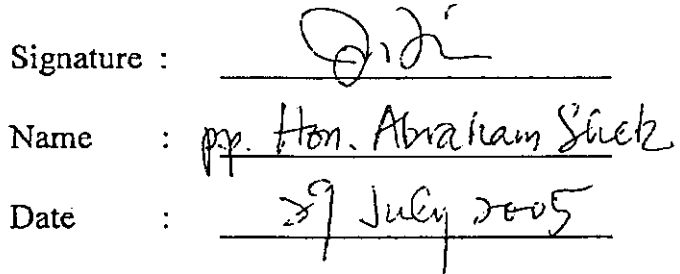 Signature :
Name : pp. Hon. Abraham Shek
Date : 29 July 2005